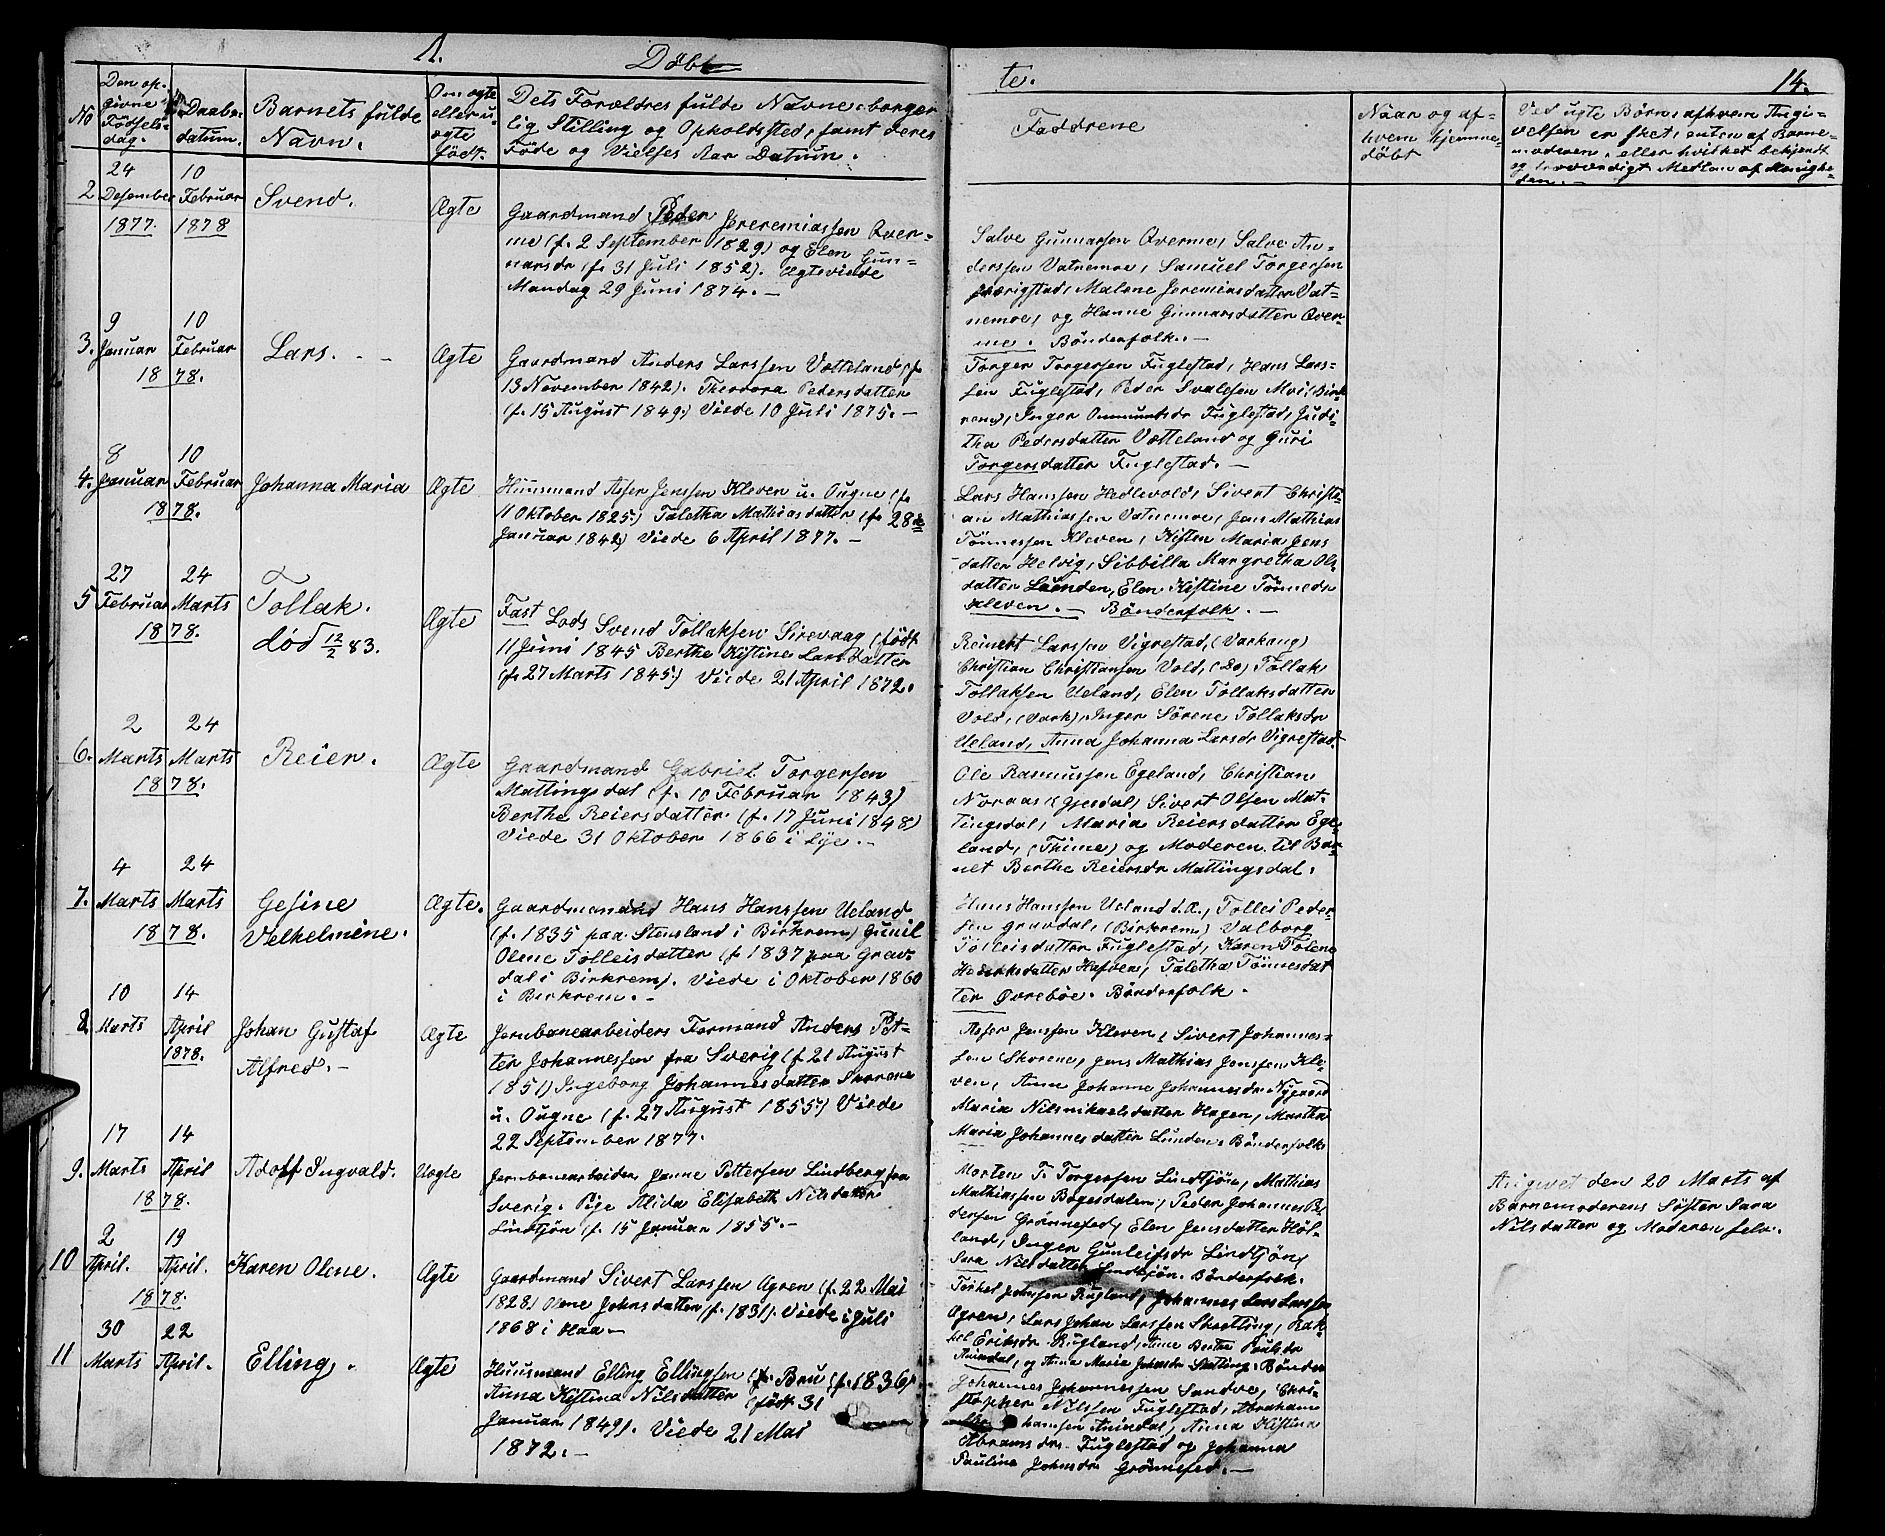 1. Døbte. 14.
No
Den op-
givne
Fødsels-
dag.
Daabs-
datum.
Barnets fulde
Navn.
Om ægte
eller u-
ægte
født.
Dets Forældres fulde Navne, borger-
lig Stilling og Opholdssted, samt deres
Føde og Vielses Aar Datum.
Faddrene
Naar og af
hvem hjemme-
døbt
Ved uægte Børn, af hvem Angi-
velsen er sket, enten af Barne-
moderen, eller hvilket bekjendt
og troværdigt Medlem af Menighe-
den.
2
24
Desember
1877.
10
Februar
1878
Svend.
Ægte
Gaardmand Peder Jereremiassen Qver-
me (f. 2 September 1829) og Elen Gun-
narsdr (f. 31 Juli 1852). Ægteviede
Mandag 29 Juni 1874. —
Salve Gunnarsen Qverme, Salve An-
derssen Vatnemoe, Samuel Torgersen
Malene Jeremiasdatter Vat-
nemoe, og Hanne Gunnarsdatter Qver-
me. Bønderfolk. —
3.
9
Januar
10
Februar
1878.
Lars. — —
Ægte
Gaardmand Anders Larssen Vatteland (f.
13 November 1842). Theodora Pedersdatter
(f. 15 August 1849.) Viede 10 Juli 1875. —
Torger Torgersen Fuglestad, Hans Lars-
sen Fuglestad, Peder Svalesen Moi, (Birk-
rem), Inger Ommundsdr Fuglestad, Judi-
tha Pedersdatter Vatteland og Guri
Torgersdatter Fuglestad. —
4.
8
Januar
10
Februar
1878.
Johanna Maria
Ægte
Huusmand Asser Jenssen Kleven u. Ougne (f.
11 Oktober 1825.) Taletha Mathiasdatter (f. 28de
Januar 1842) Viede 6 April 1877. —
Lars Hanssen Hedlevold, Sivert Christi-
an Mathiassen Vatnemoe, Jens Mathias
Tönnessen Kleven, Kisten Maria Jens
datter Helvig, Sibbilla Margretha Ols
datter Lunden, Elen Kistine Tönnedr
Kleven. — Bönderfolk. —
5
27
Februar
24
Marts
1878.
Tollak.
död 12/2 83.
Ægte
Fast Lods Svend Tollaksen Sirevaag (födt
11 Juni 1845 Berthe Kistine Larsdatter
(f. 27 Marts 1845.) Viede 21 April 1872.
Reinert Larssen Vigrestad, (Varhaug)
Christian Christiansen Vold, (Do) Tollak
Tollaksen Ueland, Elen Tollaksdatter
Vold, (Varh), Inger Sörene Tollaksdr
Ueland, Anna Johanna Larsdr Vigrestad.
6.
2
Marts
24
Marts
1878.
Reier.
Ægte
Gaardmand Gabriel Torgersen
Mattingsdal (f. 10 Februar 1843)
Berthe Reiersdatter. (f. 17 Juni 1848)
Viede 31 Oktober 1866 i Lye. —
Ole Rasmussen Egeland, Christian
Noraas (Gjesdal, Sivert Olsen Mat-
tingsdal, Maria Reiersdatter Ege-
land, (Thime) og Moderen til Bar-
net Berthe Reiersdr Mattingsdal.
7.
4
Marts
24
Marts
1878.
Gesine
Velhelmine.
Ægte.
Gaardmand Hans Hanssen Ueland
(f. 1835 paa Stensland i Birkrem) Gunil
Olene Tolleisdatter (f. 1837 paa Grav-
dal i Birkrem). Viede i Oktober 1860
i Birkrem. —
Hans Hanssen Ueland d.Æ., Tollei Peder-
sen Gravdal, (Birkrem) Valborg
Tolleisdatter Fuglestad, Karen Tolene
datter Hafven, Taletha Tönnesdat
ter Övreböe. Bönderfolk.
8.
10
Marts
14
April
1878.
Johan Gustaf
Alfred. —
Ægte
Jernbanearbeiders Formand Anders Pet-
ter Johannessen fra Sverig (f. 21 August
1851) Ingeborg Johannesdatter Skorene
u. Ougne (f. 27 August 1855.) Viede
22 September 1877.
Asser Jenssen Kleven, Sivert Johannes-
sen Skorene, Jens Mathias Jenssen Kle-
ven, Anne Johanne Johannesdr Nygaard
Maria Nilsmikaelsdatter Hagen, Martha
Maria Johannesdatter Lunden. Bönderfolk
9.
17
Marts
14
April
1878.
Adoff Ingvald.
Uægte
Jernbanearbeider Janne Pettersen Lindberg fra
Sverig. Pige Alida Elisabeth Nilsdatter
Lindtjön (f. 15 Januar 1855. —
Morten T. Torgersen Lindtjön, Mathias
Mathiassen Bögesdalen, Peder Johannes Pe-
dersen Grönnefed, Elen Jensdatter Höl-
land, Inger Gunleifsdr Lindtjön,
Sara Nilsdatter Lindtjön. Bönderfolk.
Angivet den 20 Marts af
Barnemoderens Söster Sara
Nilsdatter og Moderen selv.
10
2
April.
19
April.
1878.
Karen Olene.
Ægte
Gaardmand Sivert Larssen Ogren (f. 22 Mai
1828) Olene Johnsdatter (f. 1831). Viede i Juli
1868 i Haa —
Torkel Jonssen Rugland, Johannes Lars Larssen
Ogren, Lars Johan Larssen Skretting, Rak-
kel Eriksdr Rugland, Ane Berthe Paulsdr
Aniudal, og Anna Maria Johnsdr Skretting. Bönder
11
30
Marts
22
April.
Elling.
Ægte
Huusmand Elling Ellingsen (fr. Bru (f. 1836)
Anna Kistina Nilsdatter (födt 31
Januar 1849). Viede 21 Mai
1872. —
Johannes Johannessen Sandve, Chri-
stopher Nilssen Fuglestad, Abraham
hansen Aniudal, Anna Kistina
Abramsdr. Fuglestad og Johanna
Pauline Johnsdr Grönnefed. —